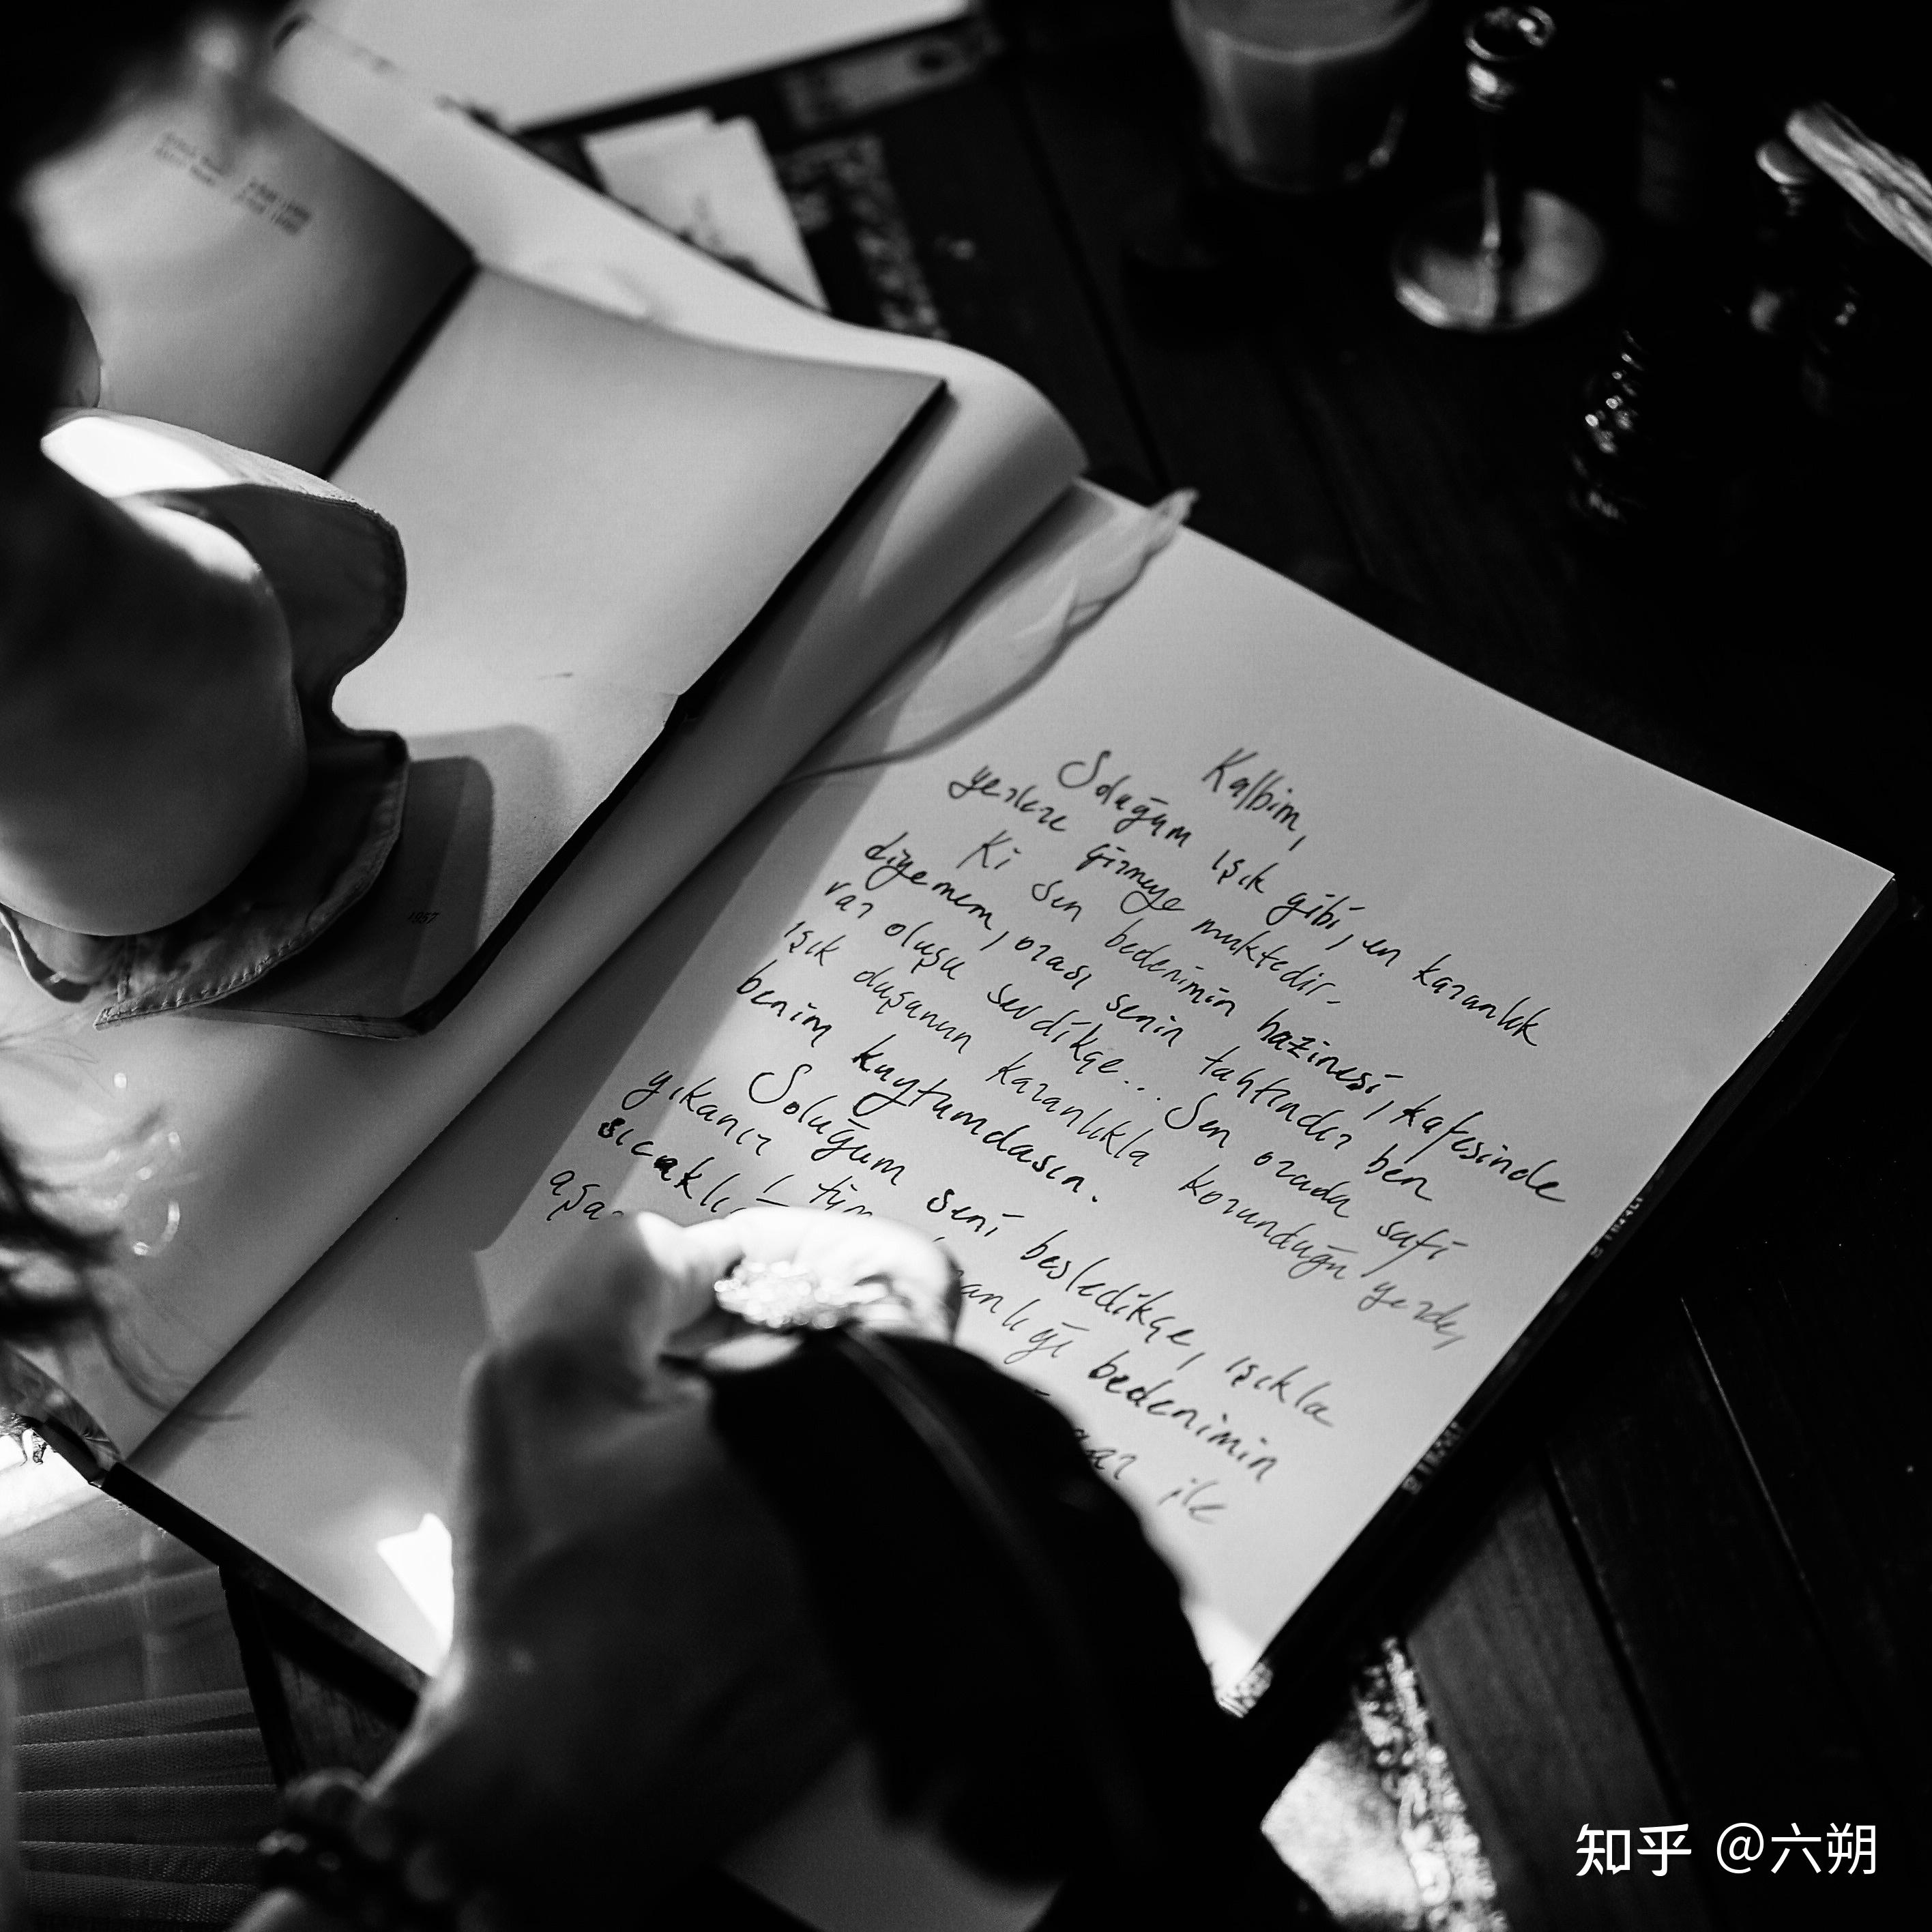 Kalbim,
Soluğum ışık gibi, en karanlık
yerlere girmeye muktedir.
Ki sen bedenimin hazinesi, kafesinde
diyemem, orası senin tahtındır ben
var oluşu sevdikçe... Sen orada safi
ışık oluşunun karanlıkla korunduğu yerde,
benim kuytumdasın.
Soluğum seni besledikçe, ışıkla
yıkanır tüm bedenimin
ile
1957
知乎 @六朔